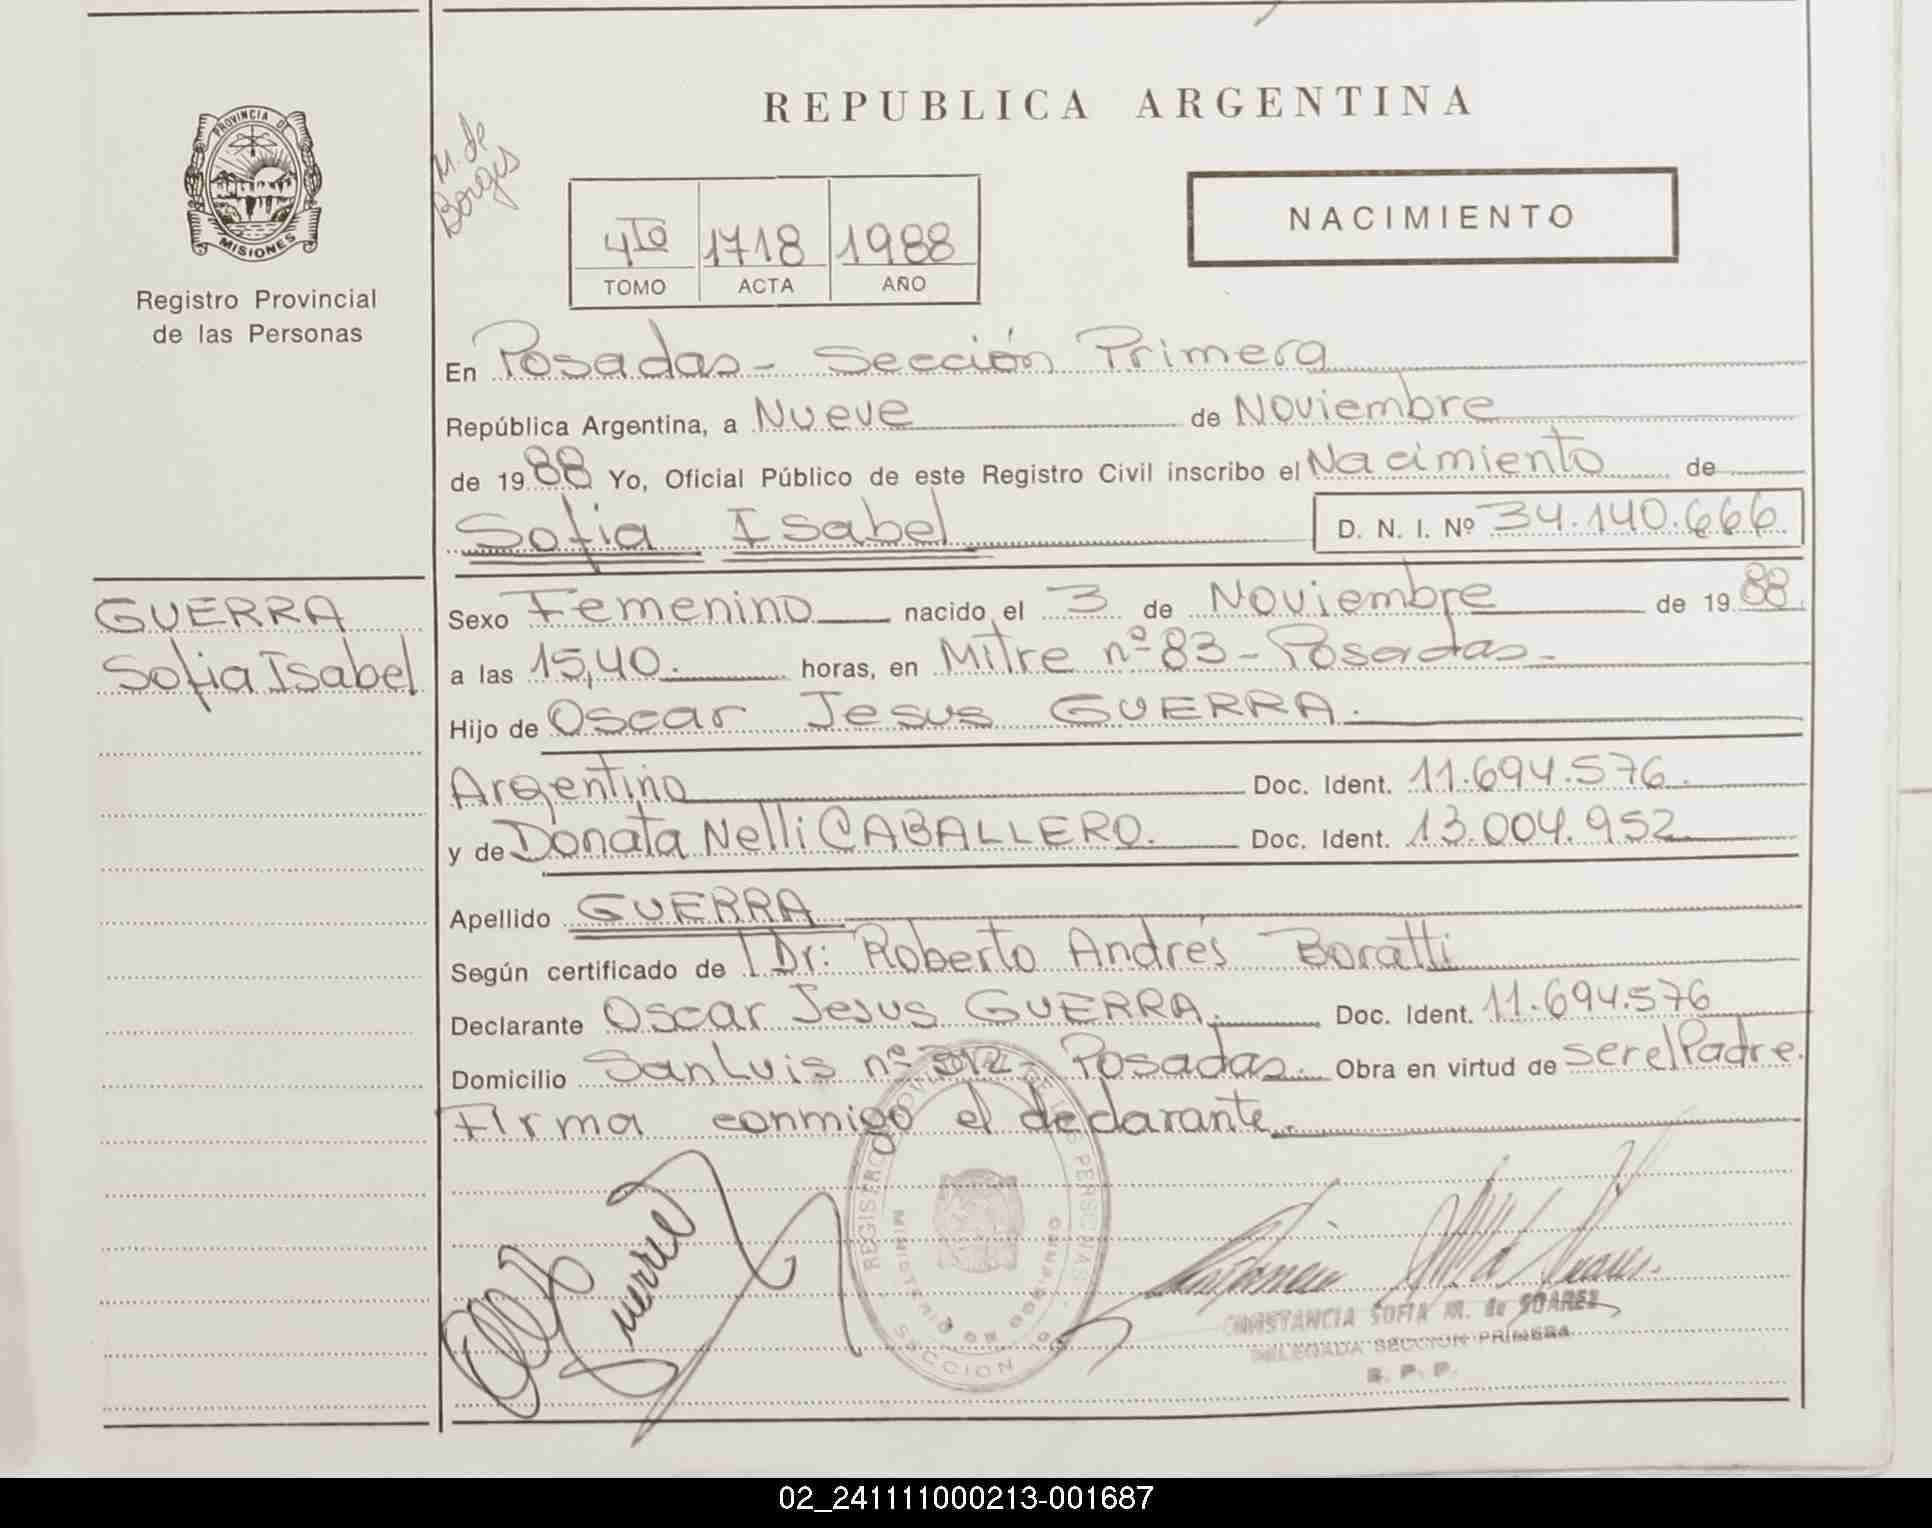 REPUBLICA ARGENTINA
PROVINCIA DE
MISIONES
Registro Provincial
de las Personas
M. de
Borges
4to 1718 1988
TOMO ACTA AÑO
NACIMIENTO
En Posadas - Sección Primera
República Argentina, a Nueve de Noviembre
de 1988 Yo, Oficial Público de este Registro Civil inscribo el Nacimiento de
Sofia Isabel D. N. I. Nº 34.140.666
GUERRA
Sofia Isabel
Sexo Femenino nacido el 3 de Noviembre de 1988
a las 15,40. horas, en Mitre nº 83 - Posadas -
Hijo de Oscar Jesus GUERRA.
Argentino Doc. Ident. 11.694.576.
y de Donata Nelli CABALLERO. Doc. Ident. 13.004.952
Apellido GUERRA
Según certificado de Dr: Roberto Andrés Boratti
Declarante Oscar Jesus GUERRA. Doc. Ident. 11.694.576
Domicilio San Luis nº Posadas. Obra en virtud de ser el Padre.
Firma conmigo el declarante.
Guerra
REGISTRO PROVINCIAL DE LAS PERSONAS
MINISTERIO DE GOBIERNO
SECCION 1a
CONSTANCIA SOFIA M. de SUAREZ
DELEGADA SECCION PRIMERA
R. P. P.
02_241111000213-001687